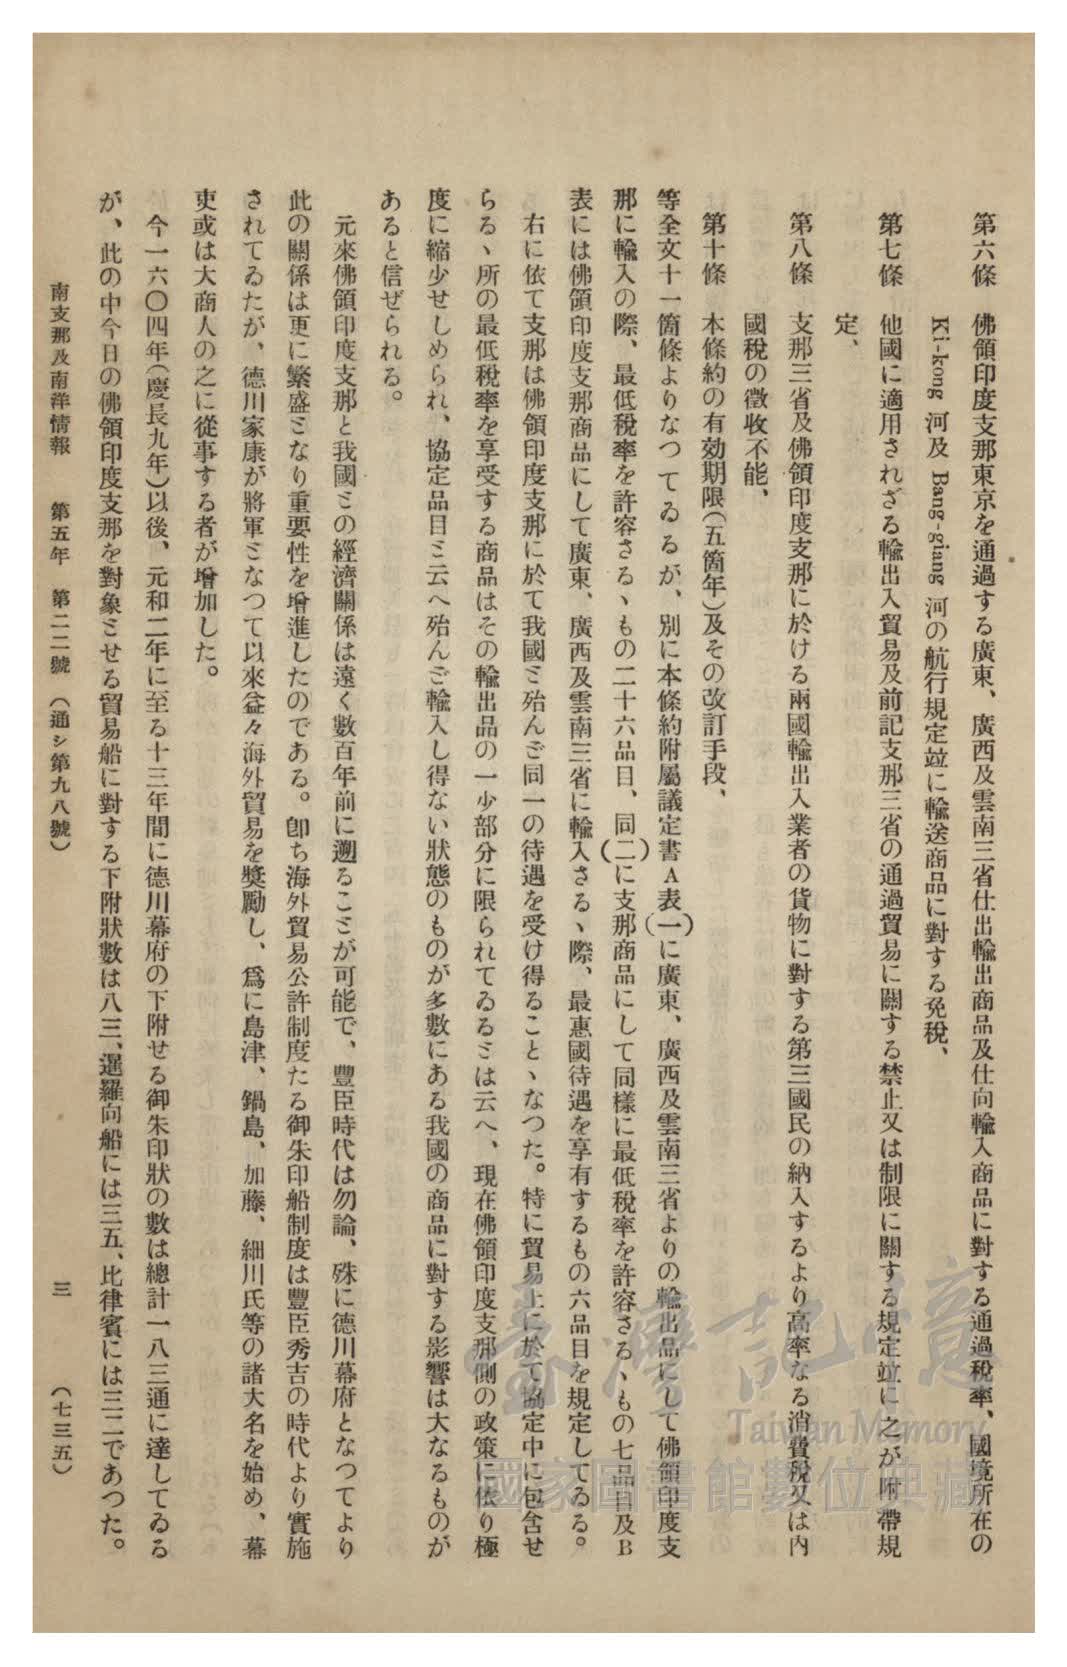 第六條　佛領印度支那東京を通過する廣東、廣西及雲南三省仕出輸出商品及仕向輸入商品に對する通過稅率、國境所在の
Ki-kong 河及 Bang-giang 河の航行規定竝に輸送商品に對する免稅、
第七條　他國に適用されざる輸出入貿易及前記支那三省の通過貿易に關する禁止又は制限に關する規定竝に之が附帶規
定、
第八條　支那三省及佛領印度支那に於ける兩國輸出入業者の貨物に對する第三國民の納入するより高率なる消費稅又は內
國稅の徵收不能、
第十條　本條約の有効期限(五箇年)及その改訂手段、
等全文十一箇條よりなつてゐるが、別に本條約附屬議定書A表(一)に廣東、廣西及雲南三省よりの輸出品にして佛領印度支
那に輸入の際、最低稅率を許容さるゝもの二十六品目、同(二)に支那商品にして同樣に最低稅率を許容さるゝもの七品目及B
表には佛領印度支那商品にして廣東、廣西及雲南三省に輸入さるゝ際、最惠國待遇を享有するもの六品目を規定してゐる。
右に依て支那は佛領印度支那に於て我國ミ殆んど同一の待遇を受け得ることゝなつた。特に貿易上に於て協定中に包含せ
らるゝ所の最低稅率を享受する商品はその輸出品の一少部分に限られてゐるミは云へ、現在佛領印度支那側の政策に依り極
度に縮少せしめられ、協定品目ミ云へ殆んど輸入し得ない狀態のものが多數にある我國の商品に對する影響は大なるものが
あると信ぜられる。
元來佛領印度支那と我國ミの經濟關係は遠く數百年前に遡るこミが可能で、豐臣時代は勿論、殊に德川幕府となつてより
此の關係は更に繁盛ミなり重要性を增進したのである。卽ち海外貿易公許制度たる御朱印船制度は豐臣秀吉の時代より實施
されてゐたが、德川家康が將軍ミなつて以來益々海外貿易を獎勵し、爲に島津、鍋島、加藤、細川氏等の諸大名を始め、幕
吏或は大商人の之に從事する者が增加した。
今一六〇四年(慶長九年)以後、元和二年に至る十三年間に德川幕府の下附せる御朱印狀の數は總計一八三通に達してゐる
が、此の中今日の佛領印度支那を對象ミせる貿易船に對する下附狀數は八三、暹羅向船には三五、比律賓には三二であつた。
南支那及南洋情報　第五年　第二二號　(通シ第九八號)　三　(七三五)
臺灣記憶
Taiwan Memory
國家圖書館數位典藏